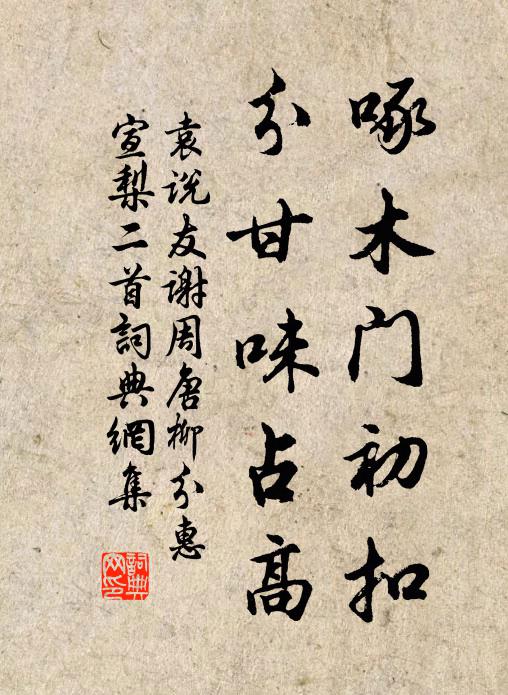 啄木门初扣
分甘味占高
袁说友谢周唐柳分惠
宣梨二首詞典網集
詞典網印